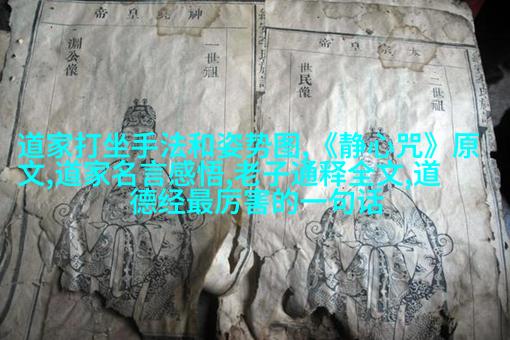 神堯皇帝
一世祖
淵公像
太宗皇帝
二世祖
世民像
道家打坐手法和姿势图,《静心咒》原
文,道家名言感悟,老子通释全文,道
德经最厉害的一句话